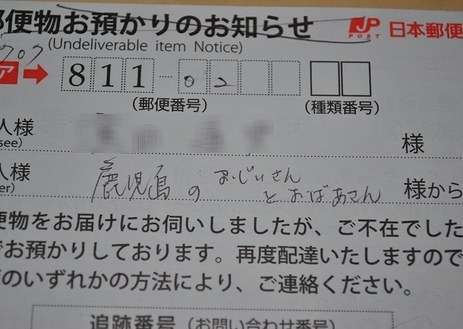 郵便物お預かりのお知らせ
JP POST 日本郵便
(Undeliverable item Notice)
ア 811-02
(郵便番号) (種類番号)
人様 様
see)
人様 鹿児島の おじいさんとおばあさん 様から
er)
便物をお届けにお伺いしましたが、ご不在でした
でお預かりしております。再度配達いたしますので
のいずれかの方法により、ご連絡ください。
追跡番号(お問い合わせ番号)